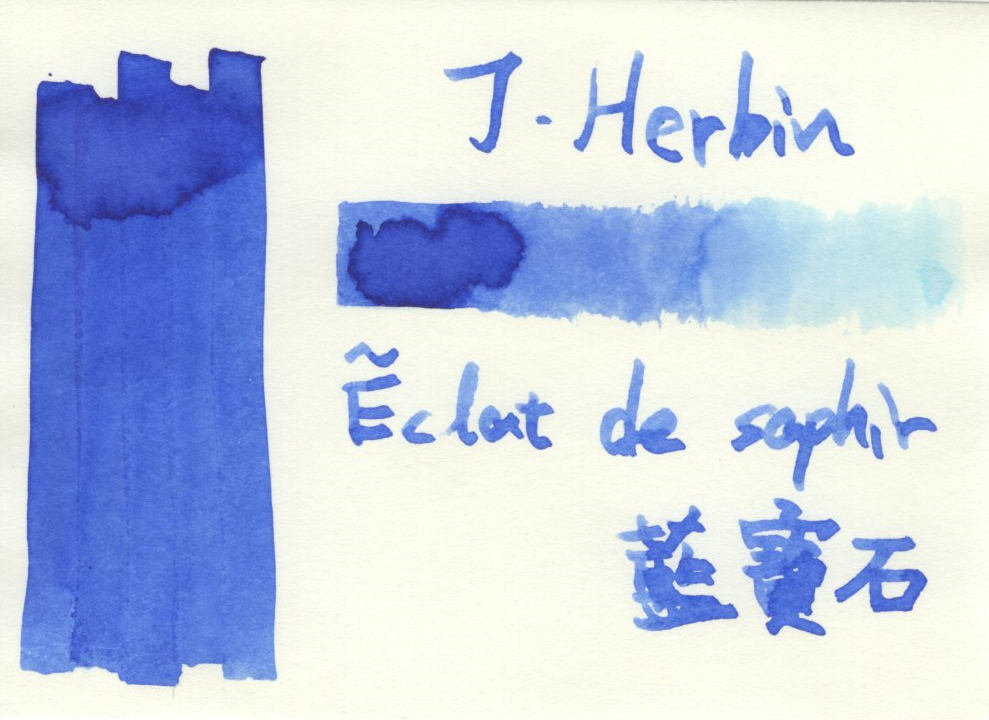 J. Herbin
Ẽclat de saphir
藍寶石